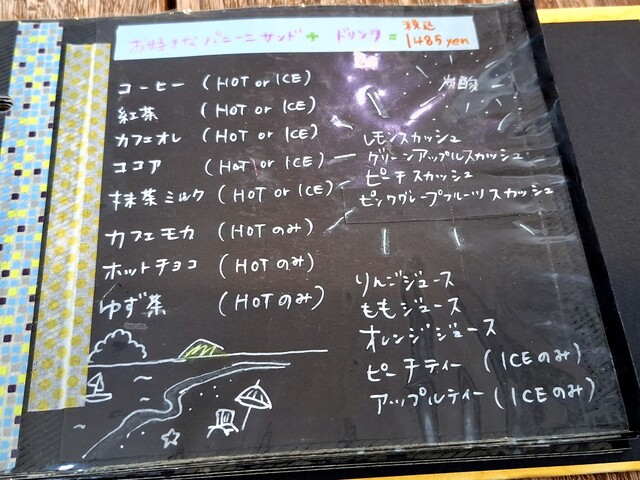 お好きなパニーニサンド + ドリンク = 税込 1485yen
コーヒー (HOT or ICE)
紅茶 (HOT or ICE)
カフェオレ (HOT or ICE)
ココア (HOT or ICE)
抹茶ミルク (HOT or ICE)
カフェモカ (HOTのみ)
ホットチョコ (HOTのみ)
ゆず茶 (HOTのみ)
炭酸
レモンスカッシュ
グリーンアップルスカッシュ
ピーチスカッシュ
ピンクグレープフルーツスカッシュ
りんごジュース
ももジュース
オレンジジュース
ピーチティー (ICEのみ)
アップルティー (ICEのみ)